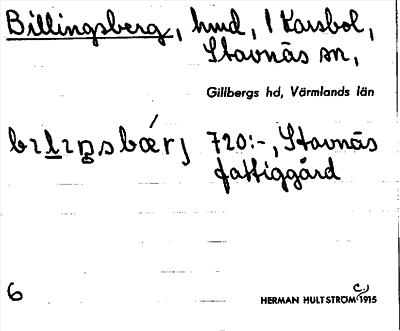 Billingsberg, hmd, 1 Karsbol,
Stavnäs sn,
Gillbergs hd, Värmlands län
bılıŋsbærj 720:-, Stavnäs
fattiggård
6
HERMAN HULTSTRÖM 1915